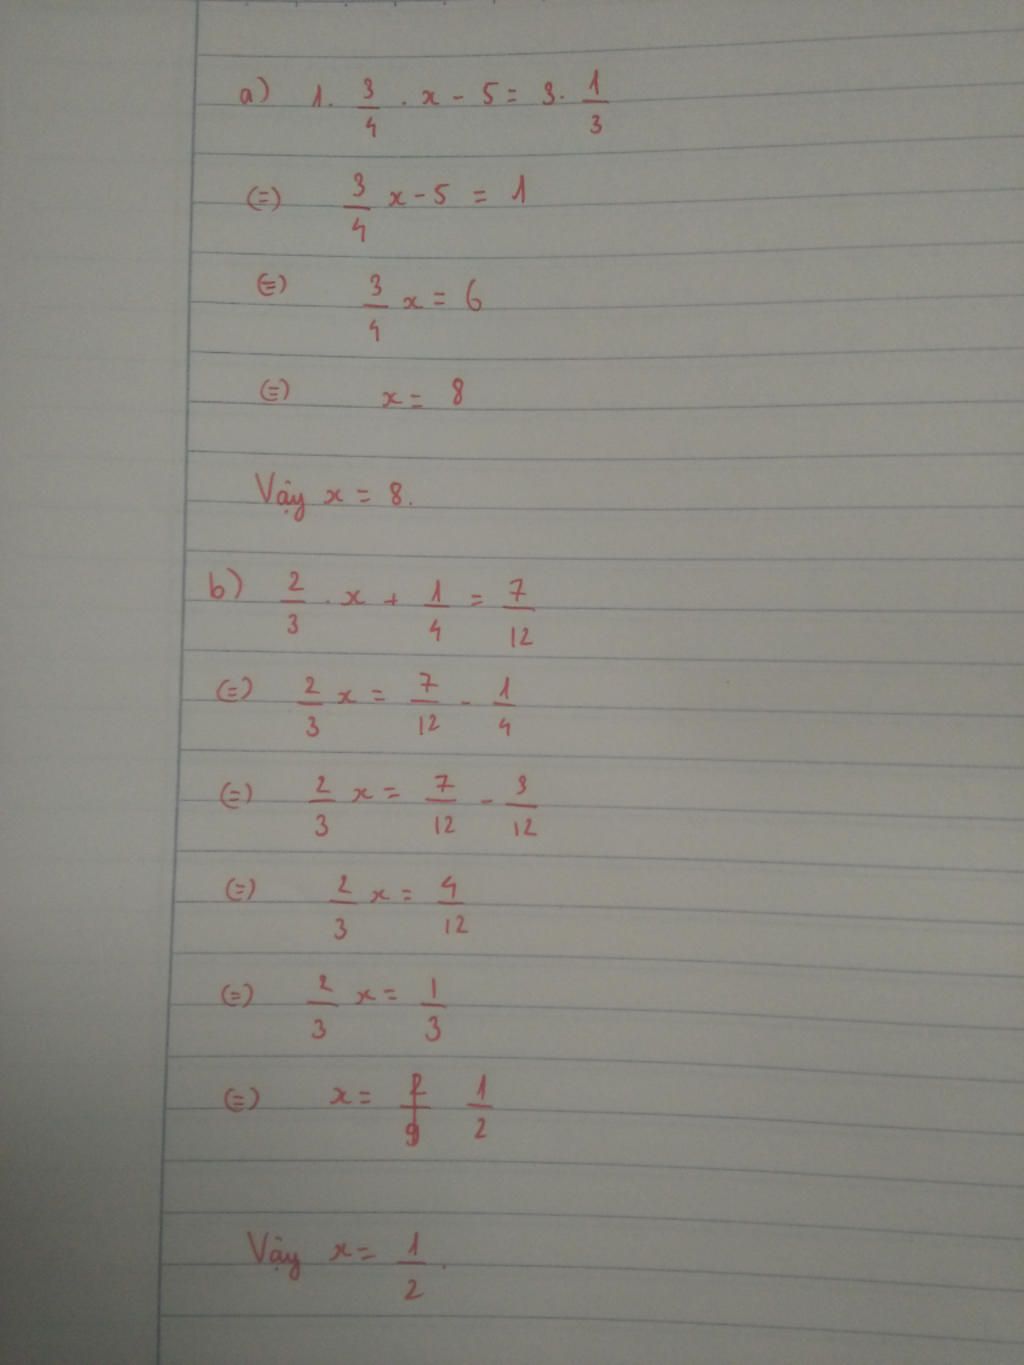 a) 1. 3/4 . x - 5 = 3. 1/3
(=) 3/4 x - 5 = 1
(=) 3/4 x = 6
(=) x = 8
Vậy x = 8.
b) 2/3 . x + 1/4 = 7/12
(=) 2/3 x = 7/12 - 1/4
(=) 2/3 x = 7/12 - 3/12
(=) 2/3 x = 4/12
(=) 2/3 x = 1/3
(=) x = 1/2
Vậy x = 1/2 .